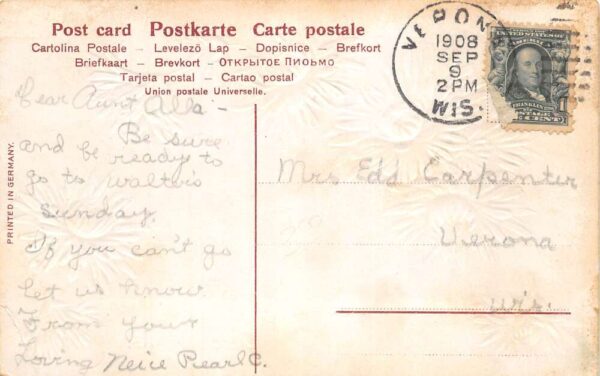 Post card Postkarte Carte postale
Cartolina Postale – Levelező Lap – Dopisnice – Brefkort
Briefkaart – Brevkort – ОТКРЫТОЕ ПИСЬМО
Tarjeta postal – Cartao postal
Union postale Universelle.
VERONA
1908
SEP
9
2 PM
WIS.
UNITED STATES OF
FRANKLIN
POSTAGE
1 CENT
PRINTED IN GERMANY.
Dear Aunt Alla –
Be sure
and be ready to
go to walters
Sunday.
If you can't go
let us know.
From your
Loving Neice Pearl C.
Mrs Edd Carpenter
Verona
Wis.